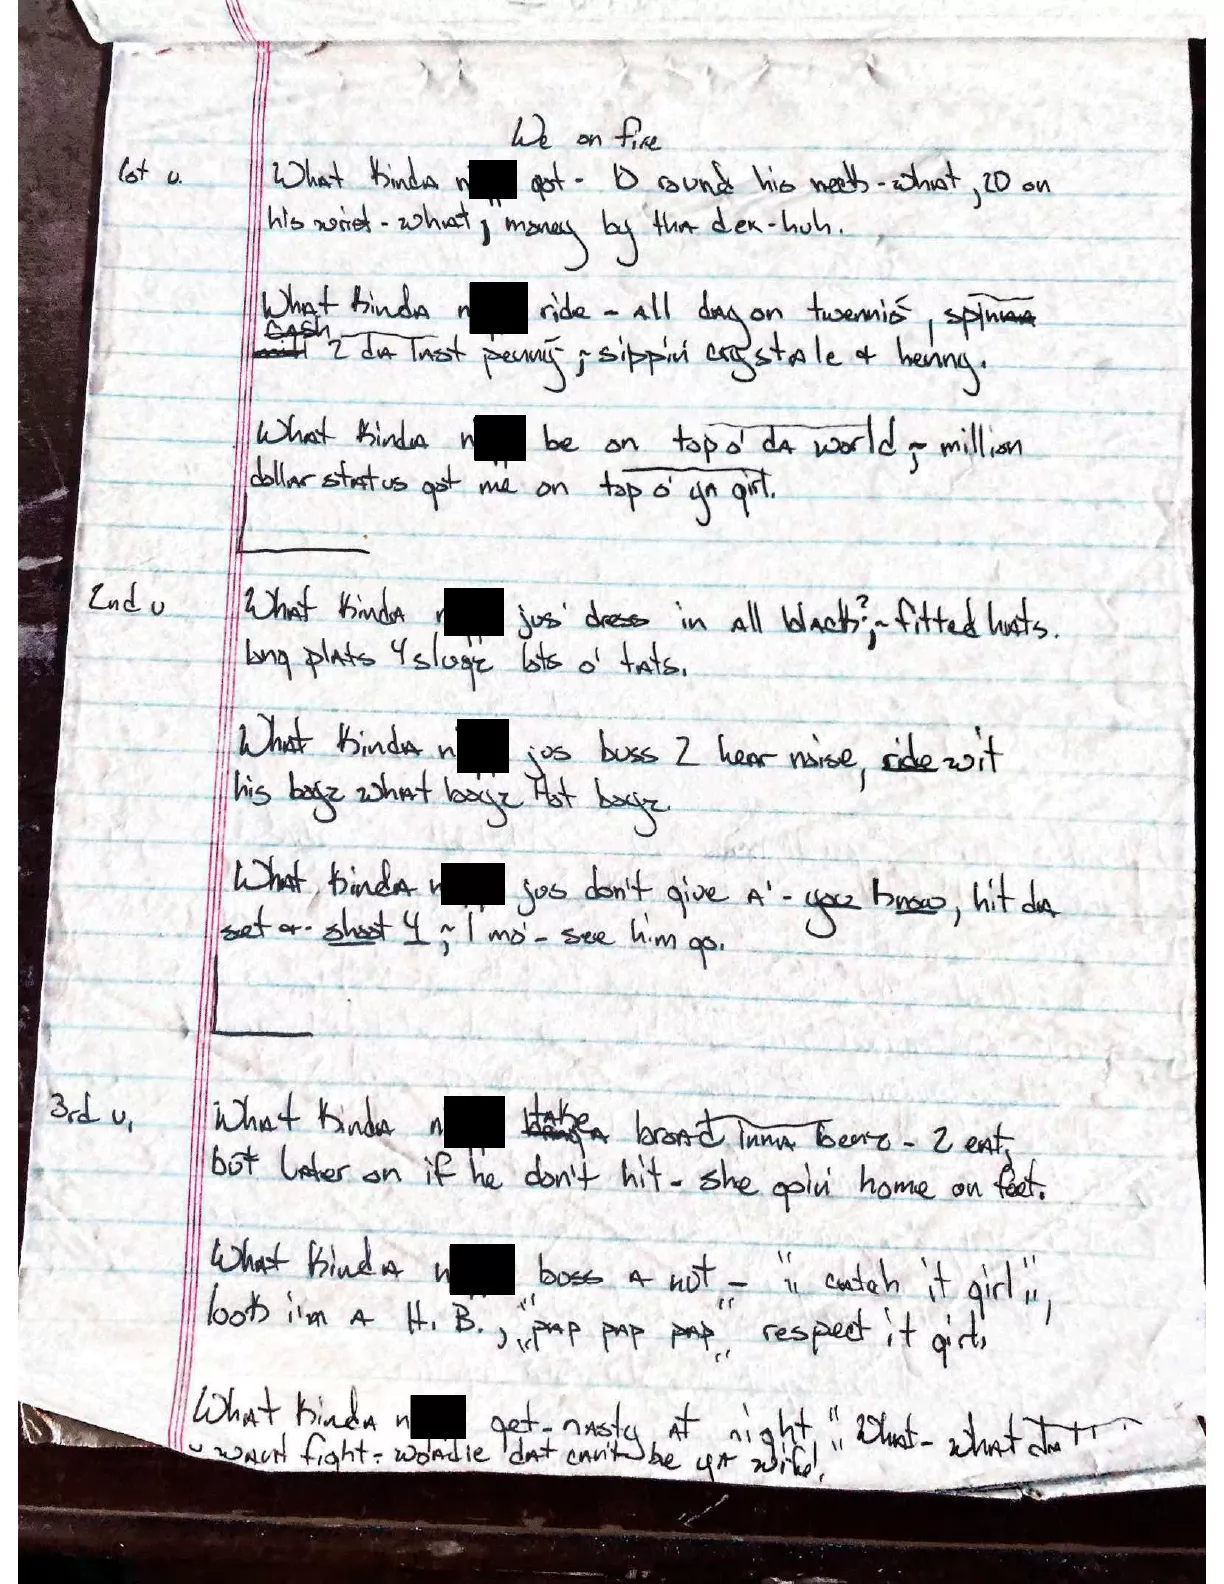 We on fire
1st v. What kinda n got - 10 round his neck - what, 20 on
his wrist - what, money by tha dex - huh.
What kinda n ride - all day on twennis,
cash 2 da last penny, sippin crystale & henny.
What kinda n be on top o' da world, million
dollar status got me on top o' ya girl.
2nd v What kinda n jus' dress in all black?, fitted hats.
long plats 4 slugz lots o' tats.
What kinda n jus buss 2 hear noise, ride wit
his boyz what boyz Hot boyz.
What kinda n jus don't give A' - you know, hit da
set & shoot 4, 1 mo' - see him go.
3rd v. What kinda n take A broad inna - 2 eat,
but later on if he don't hit - she goin' home on feet.
What kinda n buss a nut - " catch it girl",
look i'm A H. B., "pap pap pap" respect it girl.
What kinda n get - nasty at night, "What - what
fight - wodie dat can't be ya wife!